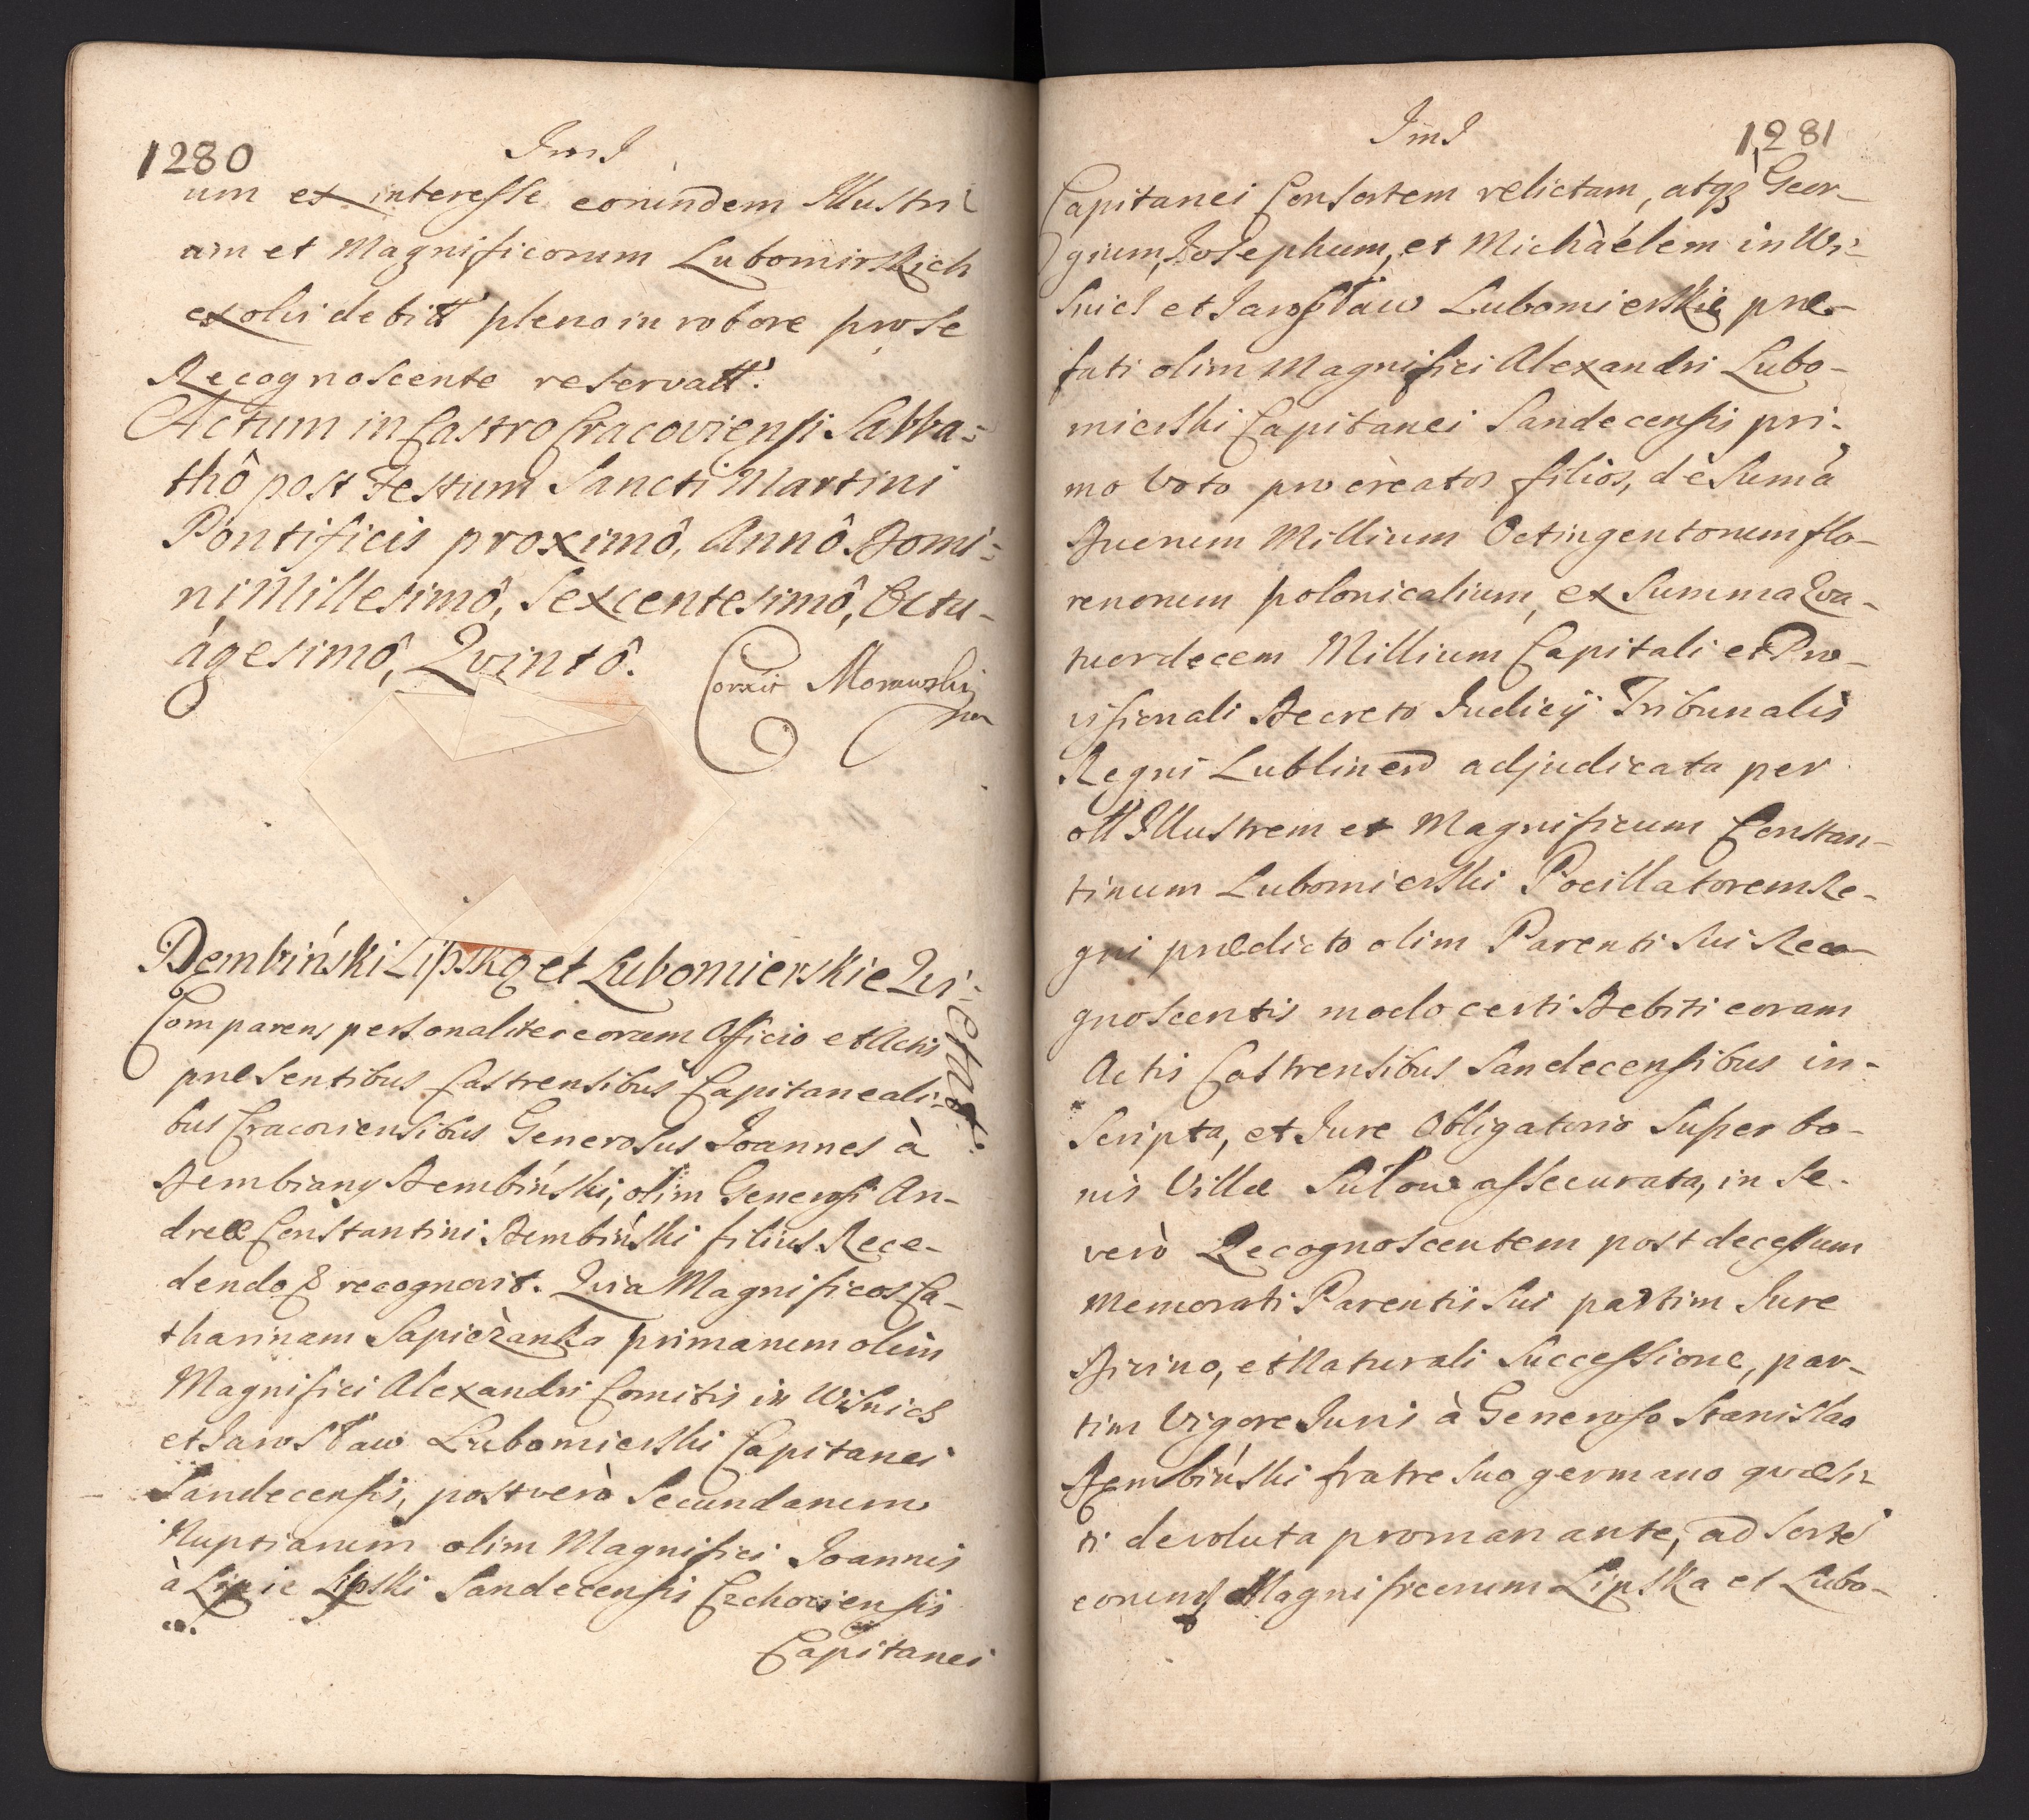 1280
um ex interesse eorundem Illustri
um et Magnificorum Lubomirskich
exolvi debitt pleno in robore pro se
Recognoscente reservatt.
Actum in Castro Cracoviensi Sabba-
thô post Festum Sancti Martini
Pontificis proximô, Annô Domi-
ni Millesimô, Sexcentesimô, Octu-
agesimô, Qvintô.
Correxit Morawski
Dembiński Lipską et Lubomierskie Qvi-
etat.
Comparens personaliter coram Officio et Actis
præsentibus Castrensibus Capitaneali-
bus Cracoviensibus Generosus Joannes à
Dembiany Dembiński, olim Generosi An-
dreæ Constantini Dembiński filius Rece-
dendo & recognovit. Qvia Magnificos Ca-
tharinam Sapieżanka primarum olim
Magnifici Alexandri Comitis in Wisnicz
et Jarosław Lubomierski Capitanei
Sandecensis, post verò Secundarum
Nuptiarum olim Magnifici Joannis
à Lipie Lipski Sandecensis Czchoviensis
Capitanei
1281
Capitanei Consortem relictam, atq3 Geor-
gium, Josephum, et Michàélem in Wi-
snicz et Jarosław Lubomierskie præ-
fati olim Magnifici Alexandri Lubo-
mierski Capitanei Sandecensis pri-
mo Voto procreatos filios, de Suma
Duorum Millium Octingentorum flo-
renorum polonicalium, ex Summa Qva-
tuordecem Millium Capitali et Pro-
visionali Decreto Judicij Tribunalis
Regni Lublinen adjudicata per
oll Illustrem et Magnificum Constan-
tinum Lubomierski Pocillatorem Re-
gni prædicto olim Parenti sui Reco-
gnoscentis modo certi Debiti coram
Actis Castrensibus Sandecensibus in-
scripta, et Jure Obligatorio super bo-
nis Villæ Sułow assecurata, in se
verò Recognoscentem post decessum
Memorati Parentis sui partim Jure
Divino, et Naturali Successione, par-
tim Vigore Juris à Generoso Stanislao
Dembiński fratre suo germano qvæsi-
ti devoluta promanante, ad sortes
eorund Magnificorum Lipska et Lubo-